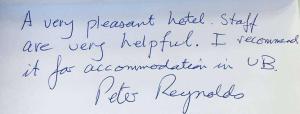 A very pleasant hotel. Staff
are very helpful. I recommend
it for accommodation in UB.
Peter Reynolds